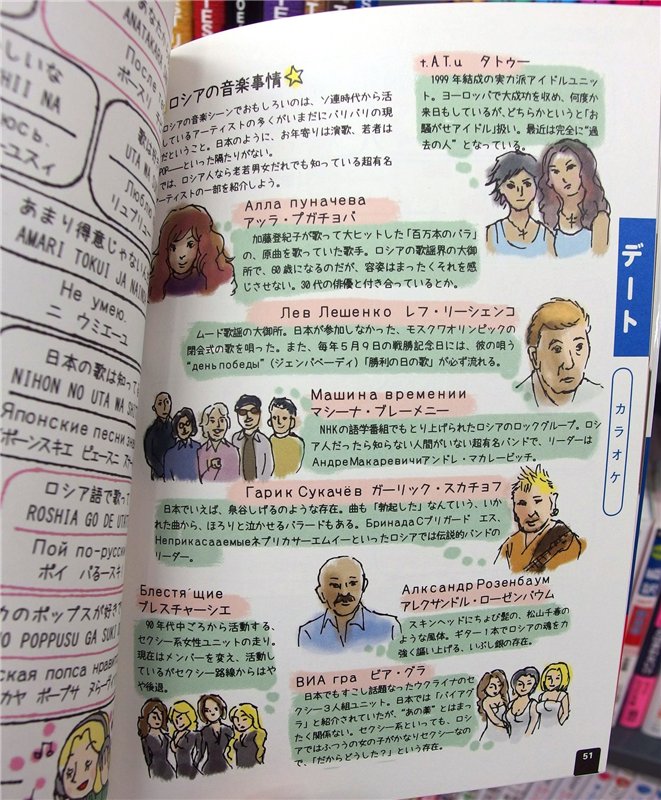 あなた
ANATAKARA
После
ポースリ
しいな
SHII NA
юсь.
ースィ
歌は
UTA NA
Люблю
リュブリュー
あまり得意じゃない
AMARI TOKUI JA NAI
Не умею.
ニ ウミエーユ
日本の歌は知って
NIHON NO UTA WA SHI
Японские песни зна
ポーンスキエ ピェースニ ズナー
ロシア語で歌っ
ROSHIA GO DE UTA
Пой по-русски
ポイ パるースキ
のポップスが好き
O POPPUSU GA SUKI
ская попса нрави
カヤ ポープサ
ロシアの音楽事情
ロシアの音楽シーンでおもしろいのは、ソ連時代から活
しているアーティストの多くがいまだにバリバリの現
だということ。日本のように、お年寄りは演歌、若者は
POP――といった隔たりがない。
では、ロシア人なら老若男女だれでも知っている超有名
アーティストの一部を紹介しよう。
t.A.T.u タトゥー
1999年結成の実力派アイドルユニッ
ト。ヨーロッパで大成功を収め、何度か
来日もしているが、どちらかというと「お
騒がせアイドル」扱い。最近は完全に“過
去の人”となっている。
Алла пуначева
アッラ・プガチョバ
加藤登紀子が歌って大ヒットした「百万本のバラ」
の、原曲を歌っていた歌手。ロシアの歌謡界の大御
所で、60歳になるのだが、容姿はまったくそれを感
じさせない。30代の俳優と付き合っているとか。
Лев Лешенко レフ・リーシェンコ
ムード歌謡の大御所。日本が参加しなかった、モスクワオリンピックの
閉会式の歌を唄った。また、毎年5月9日の戦勝記念日には、彼の唄う
“день победы”（ジェンパベーディ）「勝利の日の歌」が必ず流れる。
Машина времении
マシーナ・ブレーメニー
NHKの語学番組でもとり上げられたロシアのロックグループ。ロシ
ア人だったら知らない人間がいない超有名バンドで、リーダーは
АндреМакаревичиアンドレ・マカレービッチ。
Гарик Сукачёв ガーリック・スカチョフ
日本でいえば、泉谷しげるのような存在。曲も「勃起した」なんていう、いか
れた曲から、ほろりと泣かせるバラードもある。БринадаСブリガード エス、
Неприкасааемыеネプリカサーエムイーといったロシアでは伝説的バンドの
リーダー。
Блестя´щие
ブレスチャーシエ
90年代中ごろから活動する、
セクシー系女性ユニットの走り。
現在はメンバーを変え、活動し
ているがセクシー路線からはや
や後退。
Алксандр Розенбаум
アレクサンドル・ローゼンバウム
スキンヘッドにちょび髭の、松山千春の
ような風体。ギター1本でロシアの魂を力
強く謳い上げる、いぶし銀の存在。
ВИА гра ビア・グラ
日本でもすこし話題なったウクライナのセ
クシー3人組ユニット。日本では「バイアグ
ラ」と紹介されていたが、“あの薬”とはまっ
たく関係ない。セクシー系といっても、ロシ
アではふつうの女の子がかなりセクシーなの
で、「だからどうした？」という存在。
デート
カラオケ
51